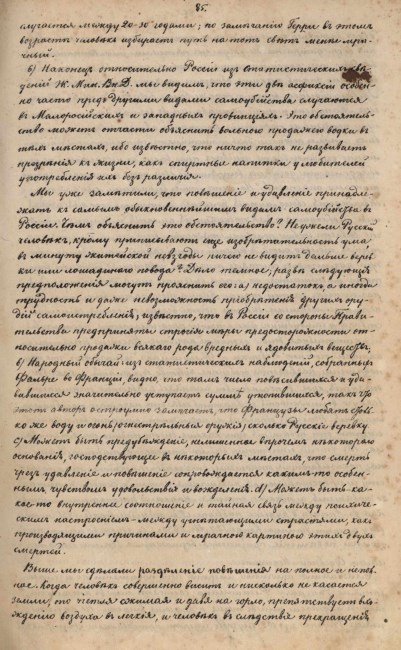 85.
случается между 20-30 годами; по замечанію Герри въ этомъ
возрастѣ человѣкъ избираетъ путь на тотъ свѣтъ менѣе мра-
чный.
б) Наконецъ относительно Россіи изъ статистическихъ свѣ-
деній Ж. Мин. Вн. Д. мы видимъ, что эти два асфиксіи особен-
но часто предъ другими видами самоубійства случаются
въ Малороссійскихъ и западныхъ провинціяхъ. Это обстоятель-
ство можетъ отчасти объяснить вольною продажею водки въ
тѣхъ мѣстахъ, ибо извѣстно, что ничто такъ не развиваетъ
презрѣнія къ жизни, какъ спиртные напитки у любителей
употребленія ихъ безъ различія.
Мы уже замѣтили, что повѣшеніе и удавленіе принадле-
жатъ къ самымъ обыкновеннѣйшимъ видамъ самоубійства въ
Россіи. Чѣмъ объяснить это обстоятельство? Не ужели Русскій
человѣкъ, кому приписываютъ еще изобрѣтательность ума,
въ минуту житейской невзгоды ничего не видитъ дальше верев-
ки или лошадинаго повода? Дѣло темное; развѣ слѣдующія
предположенія могутъ прояснить его: а) недостатокъ, а иногда
трудность и даже невозможность пріобрѣтенія другихъ ору-
дій самоистребленія; извѣстно, что въ Россіи со стороны Прави-
тельства предприняты строгія мѣры предосторожности от-
носительно продажи всякаго рода вредныхъ и ядовитыхъ веществъ,
в) Народный обычай: изъ статистическихъ наблюденій, собранныхъ
Фальре во Франціи, видно, что тамъ число повѣсившихся и уда-
вившихся значительно уступаетъ суммѣ утопившихся, такъ что
этотъ авторъ остроумно замѣчаетъ, что Французы любятъ столь-
ко же воду и огонь (огнестрѣльныя оружія) сколько Русскіе веревку
с) Можетъ быть предубѣжденіе, нелишенное впрочемъ нѣкотораго
основанія, господствующее въ нѣкоторыхъ мѣстахъ, что смерть
чрезъ удавленіе и повѣшеніе сопровождается какимъ-то особен-
нымъ чувствомъ удовольствія и вожделенія. d) Можетъ быть ка-
кое-то внутреннее соотношеніе и тайная связь между психиче-
скимъ настроеніемъ - между угнетающими страстями, какъ
производящими причинами и мрачною картиною этихъ двухъ
смертей.
Выше мы сдѣлали раздѣленіе повѣшенія на полное и непол-
ное. Когда человѣкъ совершенно виситъ и нисколько не касается
земли, то петля сжимая и давя на горло, препятствуетъ вхо-
жденію воздуха въ легкія, и человѣкъ въ слѣдствіе прекращенія